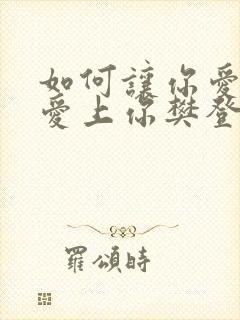 如何讓你愛
愛上你樊登
羅頌時